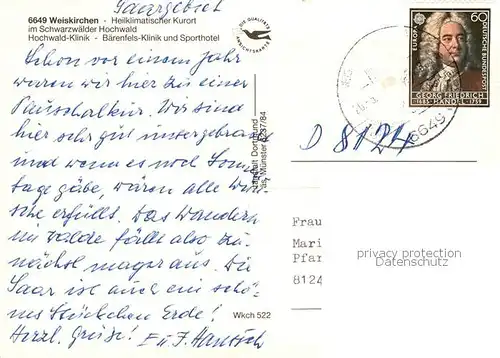 Saargebiet
6649 Weiskirchen - Heilklimatischer Kurort
im Schwarzwälder Hochwald
Hochwald-Klinik - Bärenfels-Klinik und Sporthotel
DIE QUALITÄTS
ANSICHTSKARTE
Schon vor einem Jahr
waren wir hier zu einer
Pauschalkur. Wir sind
hier sehr gut untergebracht
und wenn es noch Sonnen
tage gäbe, wären alle Wün
sche erfüllt. Das Wandern
im Walde fällt also zu
nächst mager aus. Die
Saar ist auch ein schö-
nes Stückchen Erde!
Herzl. Grüße! E u. J. Hantsch
Wkch 522
EUROPA
CEPT
60
DEUTSCHE BUNDESPOST
GEORG FRIEDRICH
1685 HÄNDEL 1759
6649
D 8124
Frau
Mari
Pfar
8124
privacy protection
Datenschutz